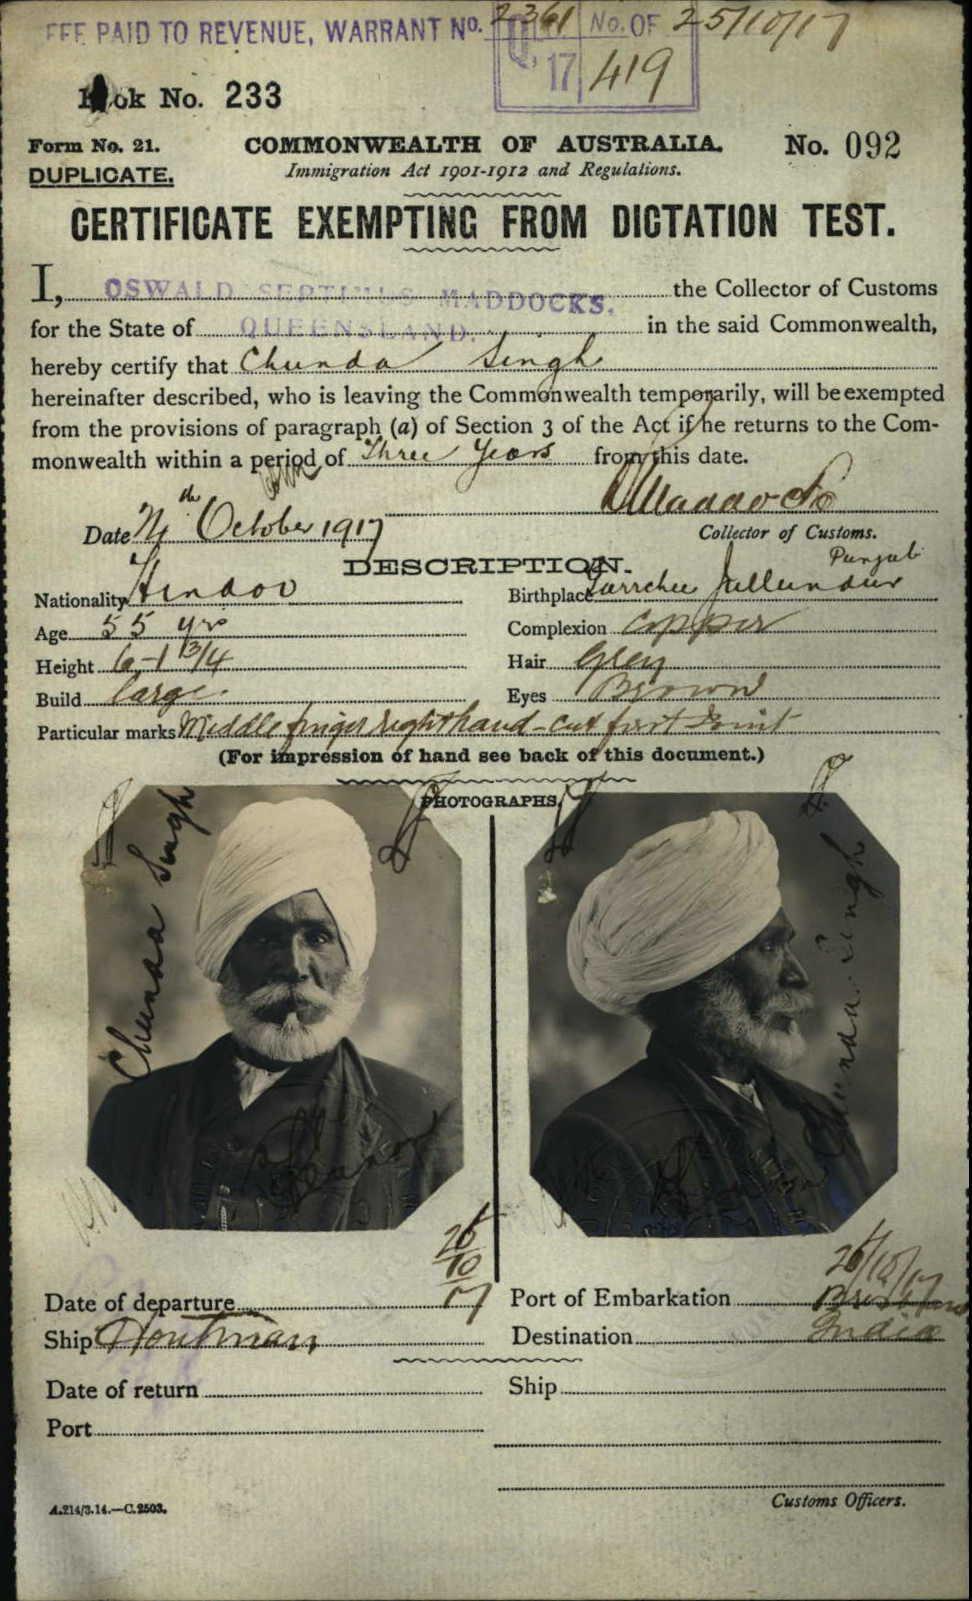 FEE PAID TO REVENUE, WARRANT No. 2361 OF 25/10/17
No.
Q. 17 419
Book No. 233
Form No. 21. COMMONWEALTH OF AUSTRALIA. No. 092
DUPLICATE. Immigration Act 1901-1912 and Regulations.
CERTIFICATE EXEMPTING FROM DICTATION TEST.
I, OSWALD SEPTIMUS MADDOCKS, the Collector of Customs
for the State of QUEENSLAND. in the said Commonwealth,
hereby certify that Chunda Singh
hereinafter described, who is leaving the Commonwealth temporarily, will be exempted
from the provisions of paragraph (a) of Section 3 of the Act if he returns to the Com-
monwealth within a period of Three Years from this date.
Date October 1917
Collector of Customs.
DESCRIPTION.
Nationality Hindoo Birthplace Jullundur Punjab
Age 55 yrs Complexion Copper
Height 6-1 3/4 Hair Grey
Build large. Eyes Brown
Particular marks Middle finger right hand - cut first Joint
(For impression of hand see back of this document.)
PHOTOGRAPHS.
Chunda Singh
Chunda Singh
Date of departure 26/10/17 Port of Embarkation Brisbane 26/10/17
Ship Houtman Destination India
Date of return Ship
Port
Customs Officers.
A.214/3.14.—C.2503.